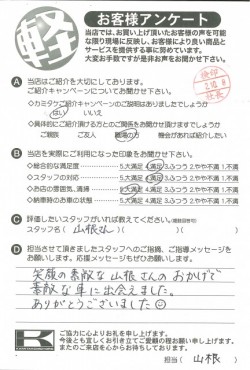 軽 お客様アンケート
当店では、お買い上げ頂いたお客様の声を可能
な限り現場に反映し、お客様により良い商品と
サービスを提供する事に努めています。
大変お手数ですが是非お声をお聞かせ下さい。
A 当店はご紹介を大切にしております。
ご紹介キャンペーンについてお聞かせ下さい。
◇カミタケご紹介キャンペーンのご説明はありましたでしょうか
はい いいえ
◇具体的にご紹介頂ける方とのご関係をお聞かせ頂けますでしょうか
ご親族 ご友人 職場の方 機会があれば紹介したい
B 当店を実際にご利用になった印象をお聞かせ下さい。
◇総合的な満足度 5.大満足 4.満足 3.ふつう 2.やや不満 1.不満
◇スタッフの対応 5.大満足 4.満足 3.ふつう 2.やや不満 1.不満
◇お店の雰囲気、清掃 5.大満足 4.満足 3.ふつう 2.やや不満 1.不満
◇納車時のお車の状態 5.大満足 4.満足 3.ふつう 2.やや不満 1.不満
C 評価したいスタッフがいれば教えてください。
スタッフ名( 山根さん )
D 担当させて頂きましたスタッフへのご指摘、ご指導メッセージを
お願いします。応援メッセージもぜひお願いします。
笑顔の素敵な山根さんのおかげで
素敵な車に出会えました。
ありがとうございました
K
ご協力に心よりお礼を申し上げます。
今後とも宜しくお引き立てご愛顧の程お願い申し上げます。
またのご来店を心からお待ちしております。
担当( 山根 )